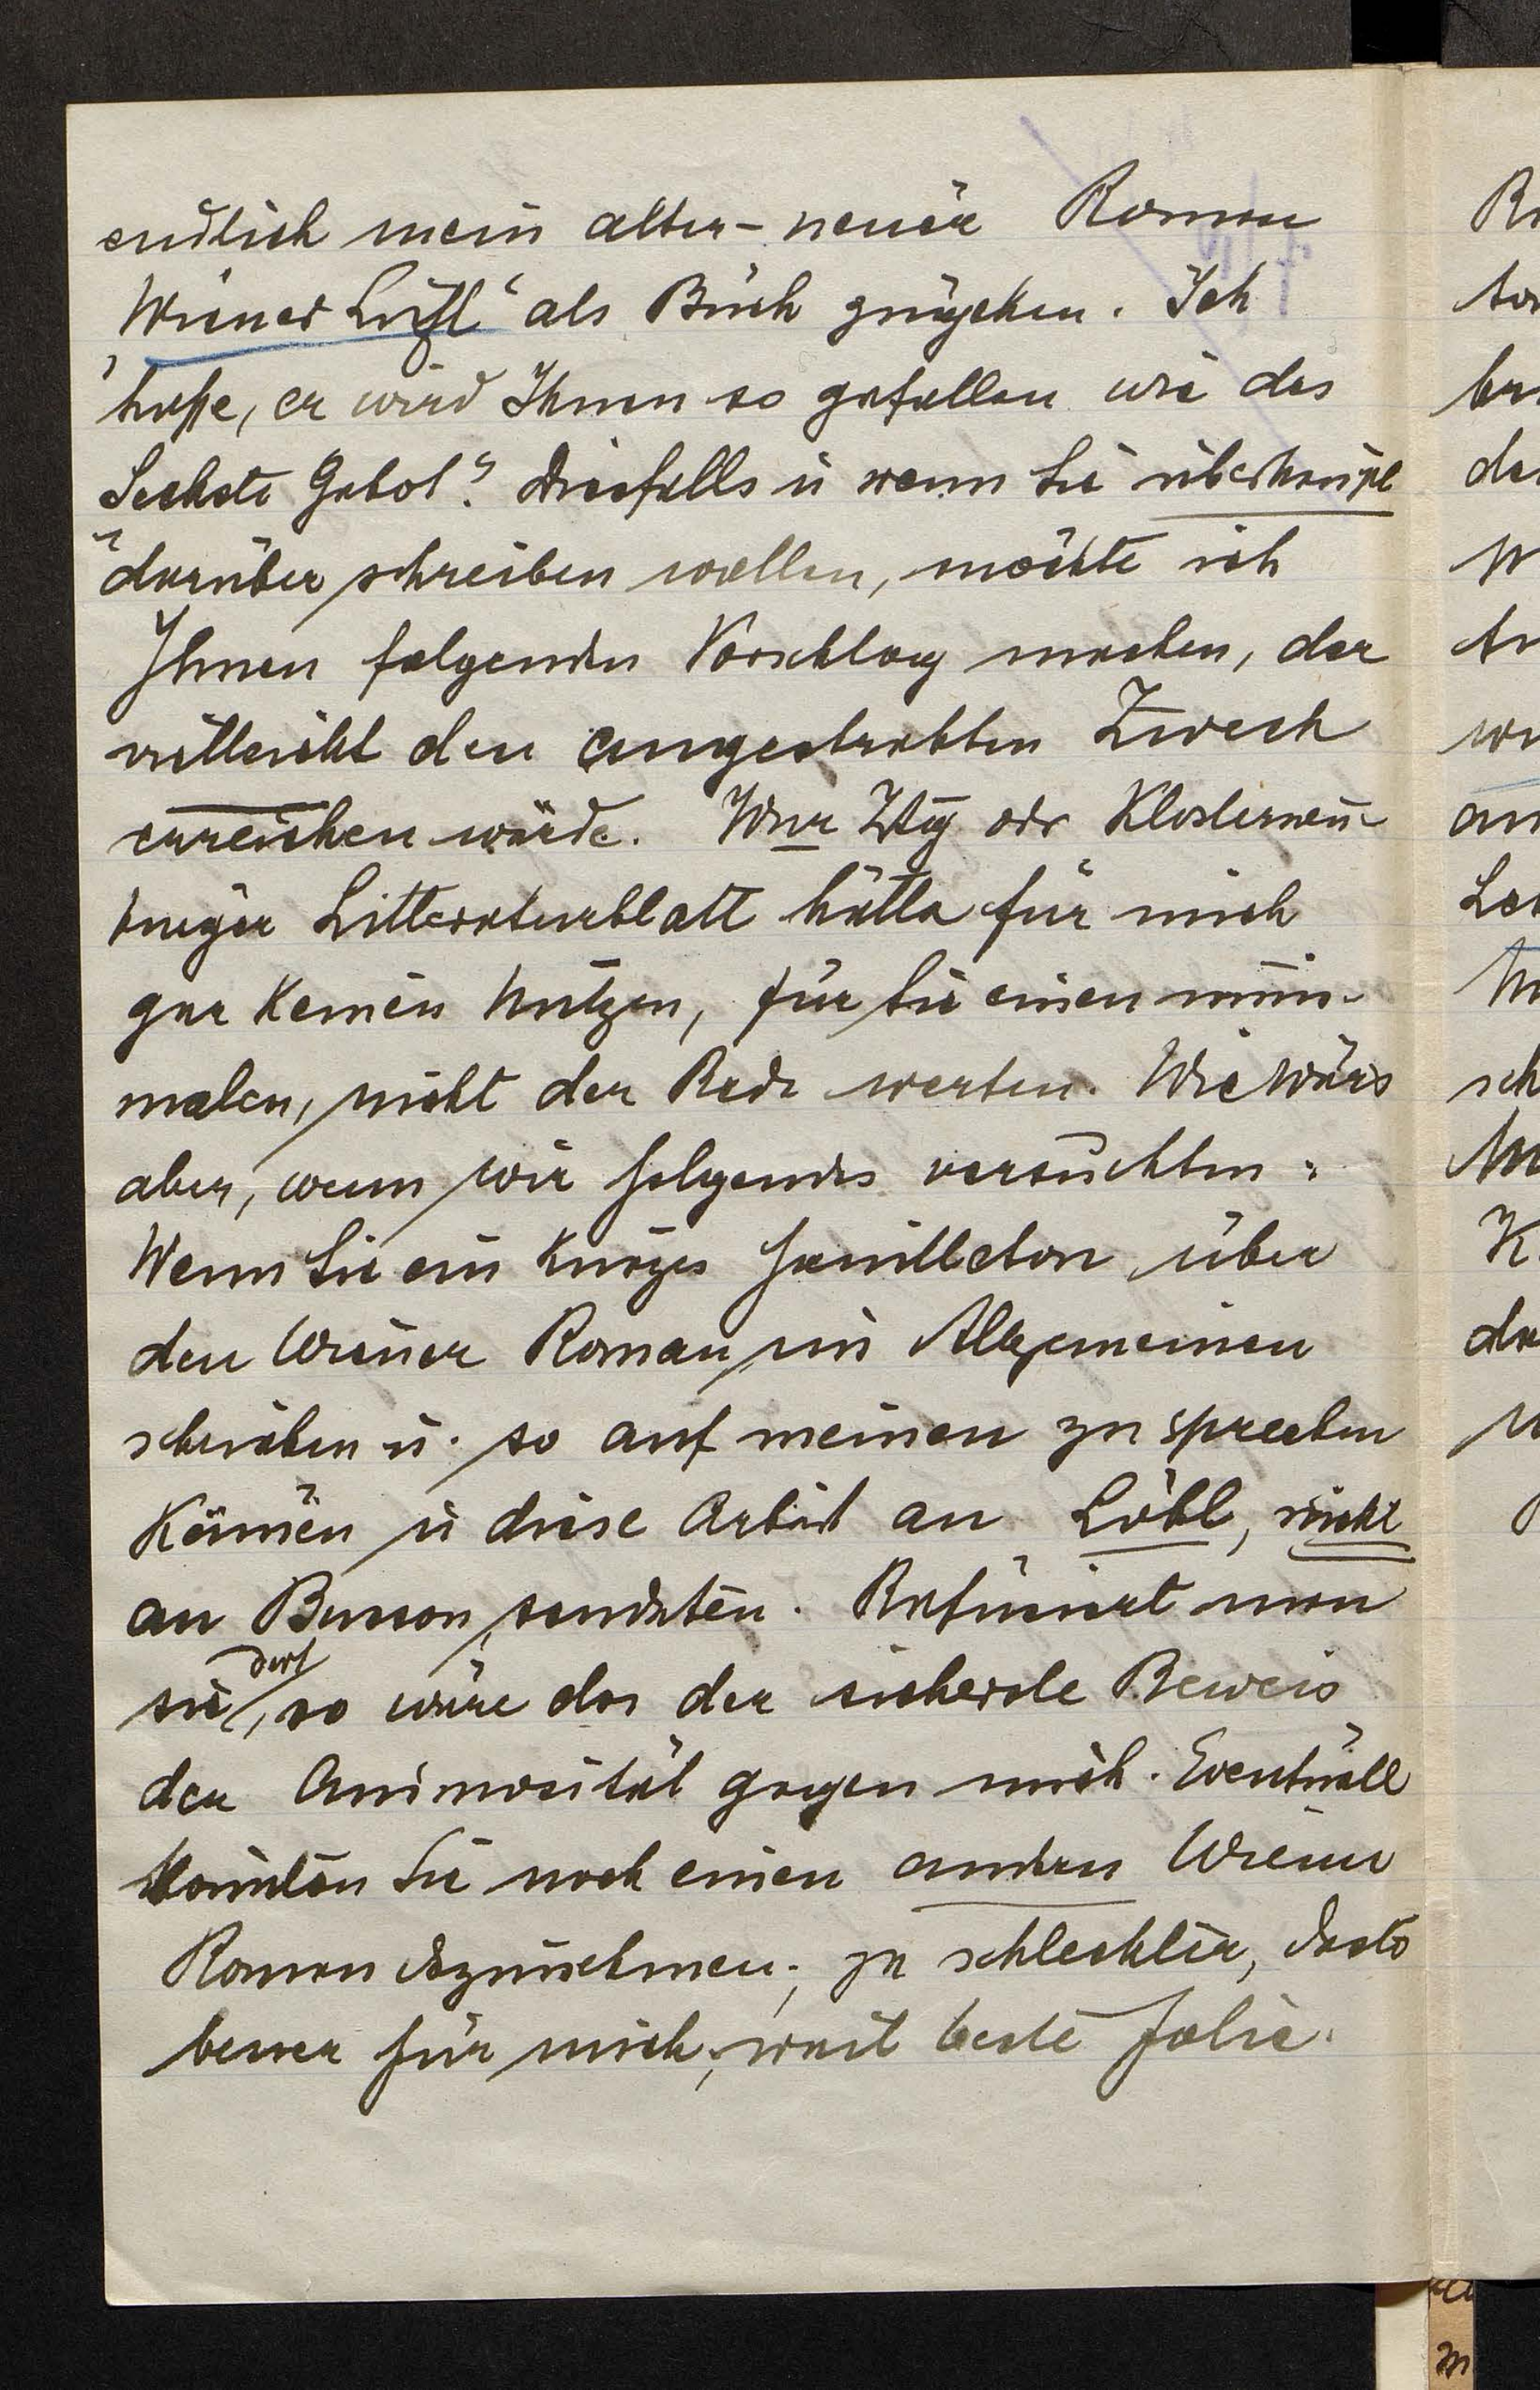 endlich mein alter-neuer Roman
„Wiener Luftl“ als Buch zugehen. Ich
hoffe, er wird Ihnen so gefallen wie das
„Sechste Gebot“. Diesfalls u wenn Sie überhaupt
darüber schreiben wollen, möchte ich
Ihnen folgenden Vorschlag machen, der
vielleicht den angestrebten Zweck
erreichen würde. Wnr Ztg odr Klosterneu-
burger Litteraturblatt hätte für mich
gar keinen Nutzen, für Sie einen mini-
malen, nicht der Rede werten. Wie wärs
aber, wenn wir folgendes versuchten:
Wenn Sie ein kurzes Feuilleton über
den Wiener Roman im Allgemeinen
schrieben u. so auf meinen zu sprechen
kämen u diese Arbeit an Löbl, nicht
an Busson, sendeten. Refusiert man
sie dort, so wäre das der sicherste Beweis
der Animosität gegen mich. Eventuell
könnten Sie noch einen andern Wiener
Roman dazunehmen; je schlechter, desto
besser für mich, weil beste Folie.
R
br
de
W
an
sch
K